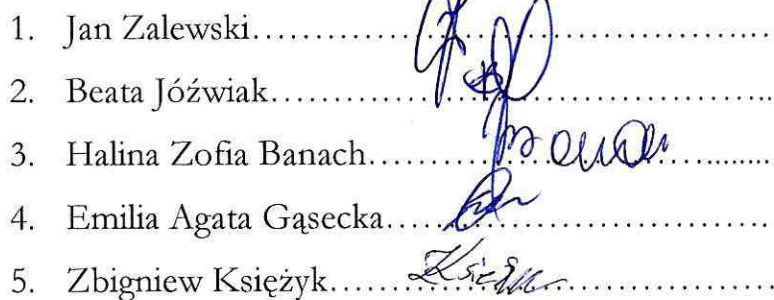 1. Jan Zalewski..............................................
2. Beata Jóźwiak............................................
3. Halina Zofia Banach....................................
4. Emilia Agata Gąsecka..................................
5. Zbigniew Księżyk........................................